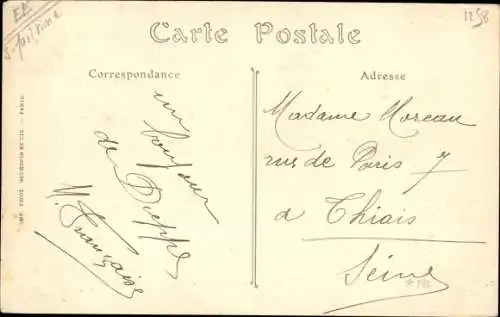 EE
1258
Carte Postale
Correspondance
Adresse
un bonjour
de Dieppe
M. Françoise
Madame Moreau
rue de Paris 7
à Thiais
Seine
IMP. PHOT. NEURDEIN ET CIE. — PARIS.